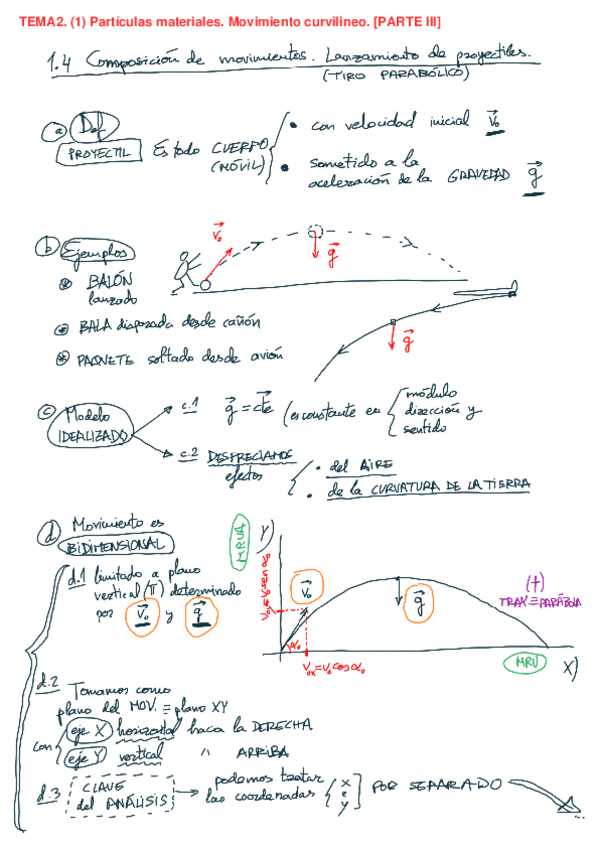 TEMA2. (1) Partículas materiales. Movimiento curvilineo. [PARTE III]
1.4 Composición de movimientos. Lanzamiento de proyectiles.
(TIRO PARABÓLICO)
a) Def
PROYECTIL Es todo CUERPO (MÓVIL)
• con velocidad inicial v₀
• sometido a la
aceleración de la GRAVEDAD g
b) Ejemplos
v₀
g
* BALÓN
lanzado
* BALA disparada desde cañón
* PAQUETE soltado desde avión
g
c) Modelo
IDEALIZADO
c.1 g = cte (es constante en
módulo
dirección y
sentido
c.2 DESPRECIAMOS
efectos
• del AIRE
• de la CURVATURA DE LA TIERRA
d) Movimiento es
BIDIMENSIONAL
d.1 limitado a plano
vertical (π) determinado
por v₀ y g
MRUA
Y)
v₀y=v₀senα₀
v₀
g
α₀
v₀x=v₀cosα₀
(+)
TRAY.≡PARÁBOLA
MRU
X)
d.2 Tomamos como
plano del MOV. ≡ plano XY
con
eje X horizontal hacia la DERECHA
eje Y vertical " ARRIBA
d.3 CLAVE
del ANÁLISIS
podemos tratar
las coordenadas
x
e
y
POR SEPARADO